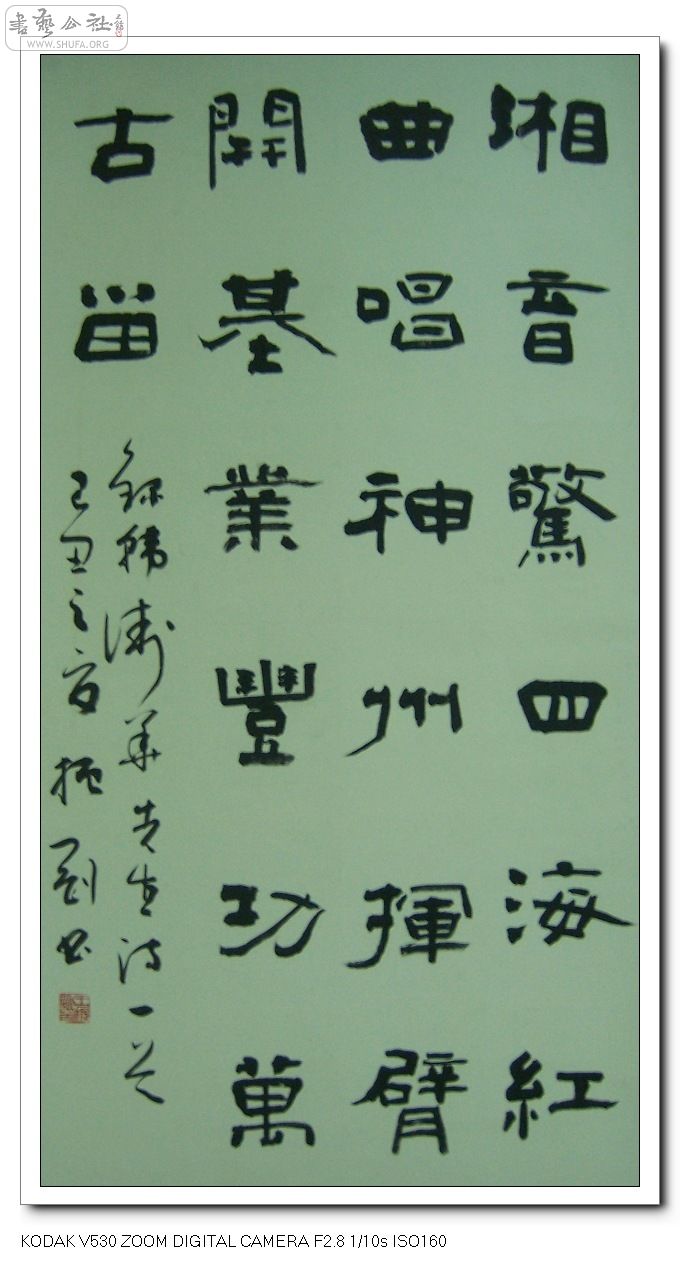 書藝公社
WWW.SHUFA.ORG
湘音驚四海紅
曲唱神州揮臂
開基業豐功萬
古留
錄韓華先生詩一首
己丑之夏振剛書
KODAK V530 ZOOM DIGITAL CAMERA F2.8 1/10s ISO160